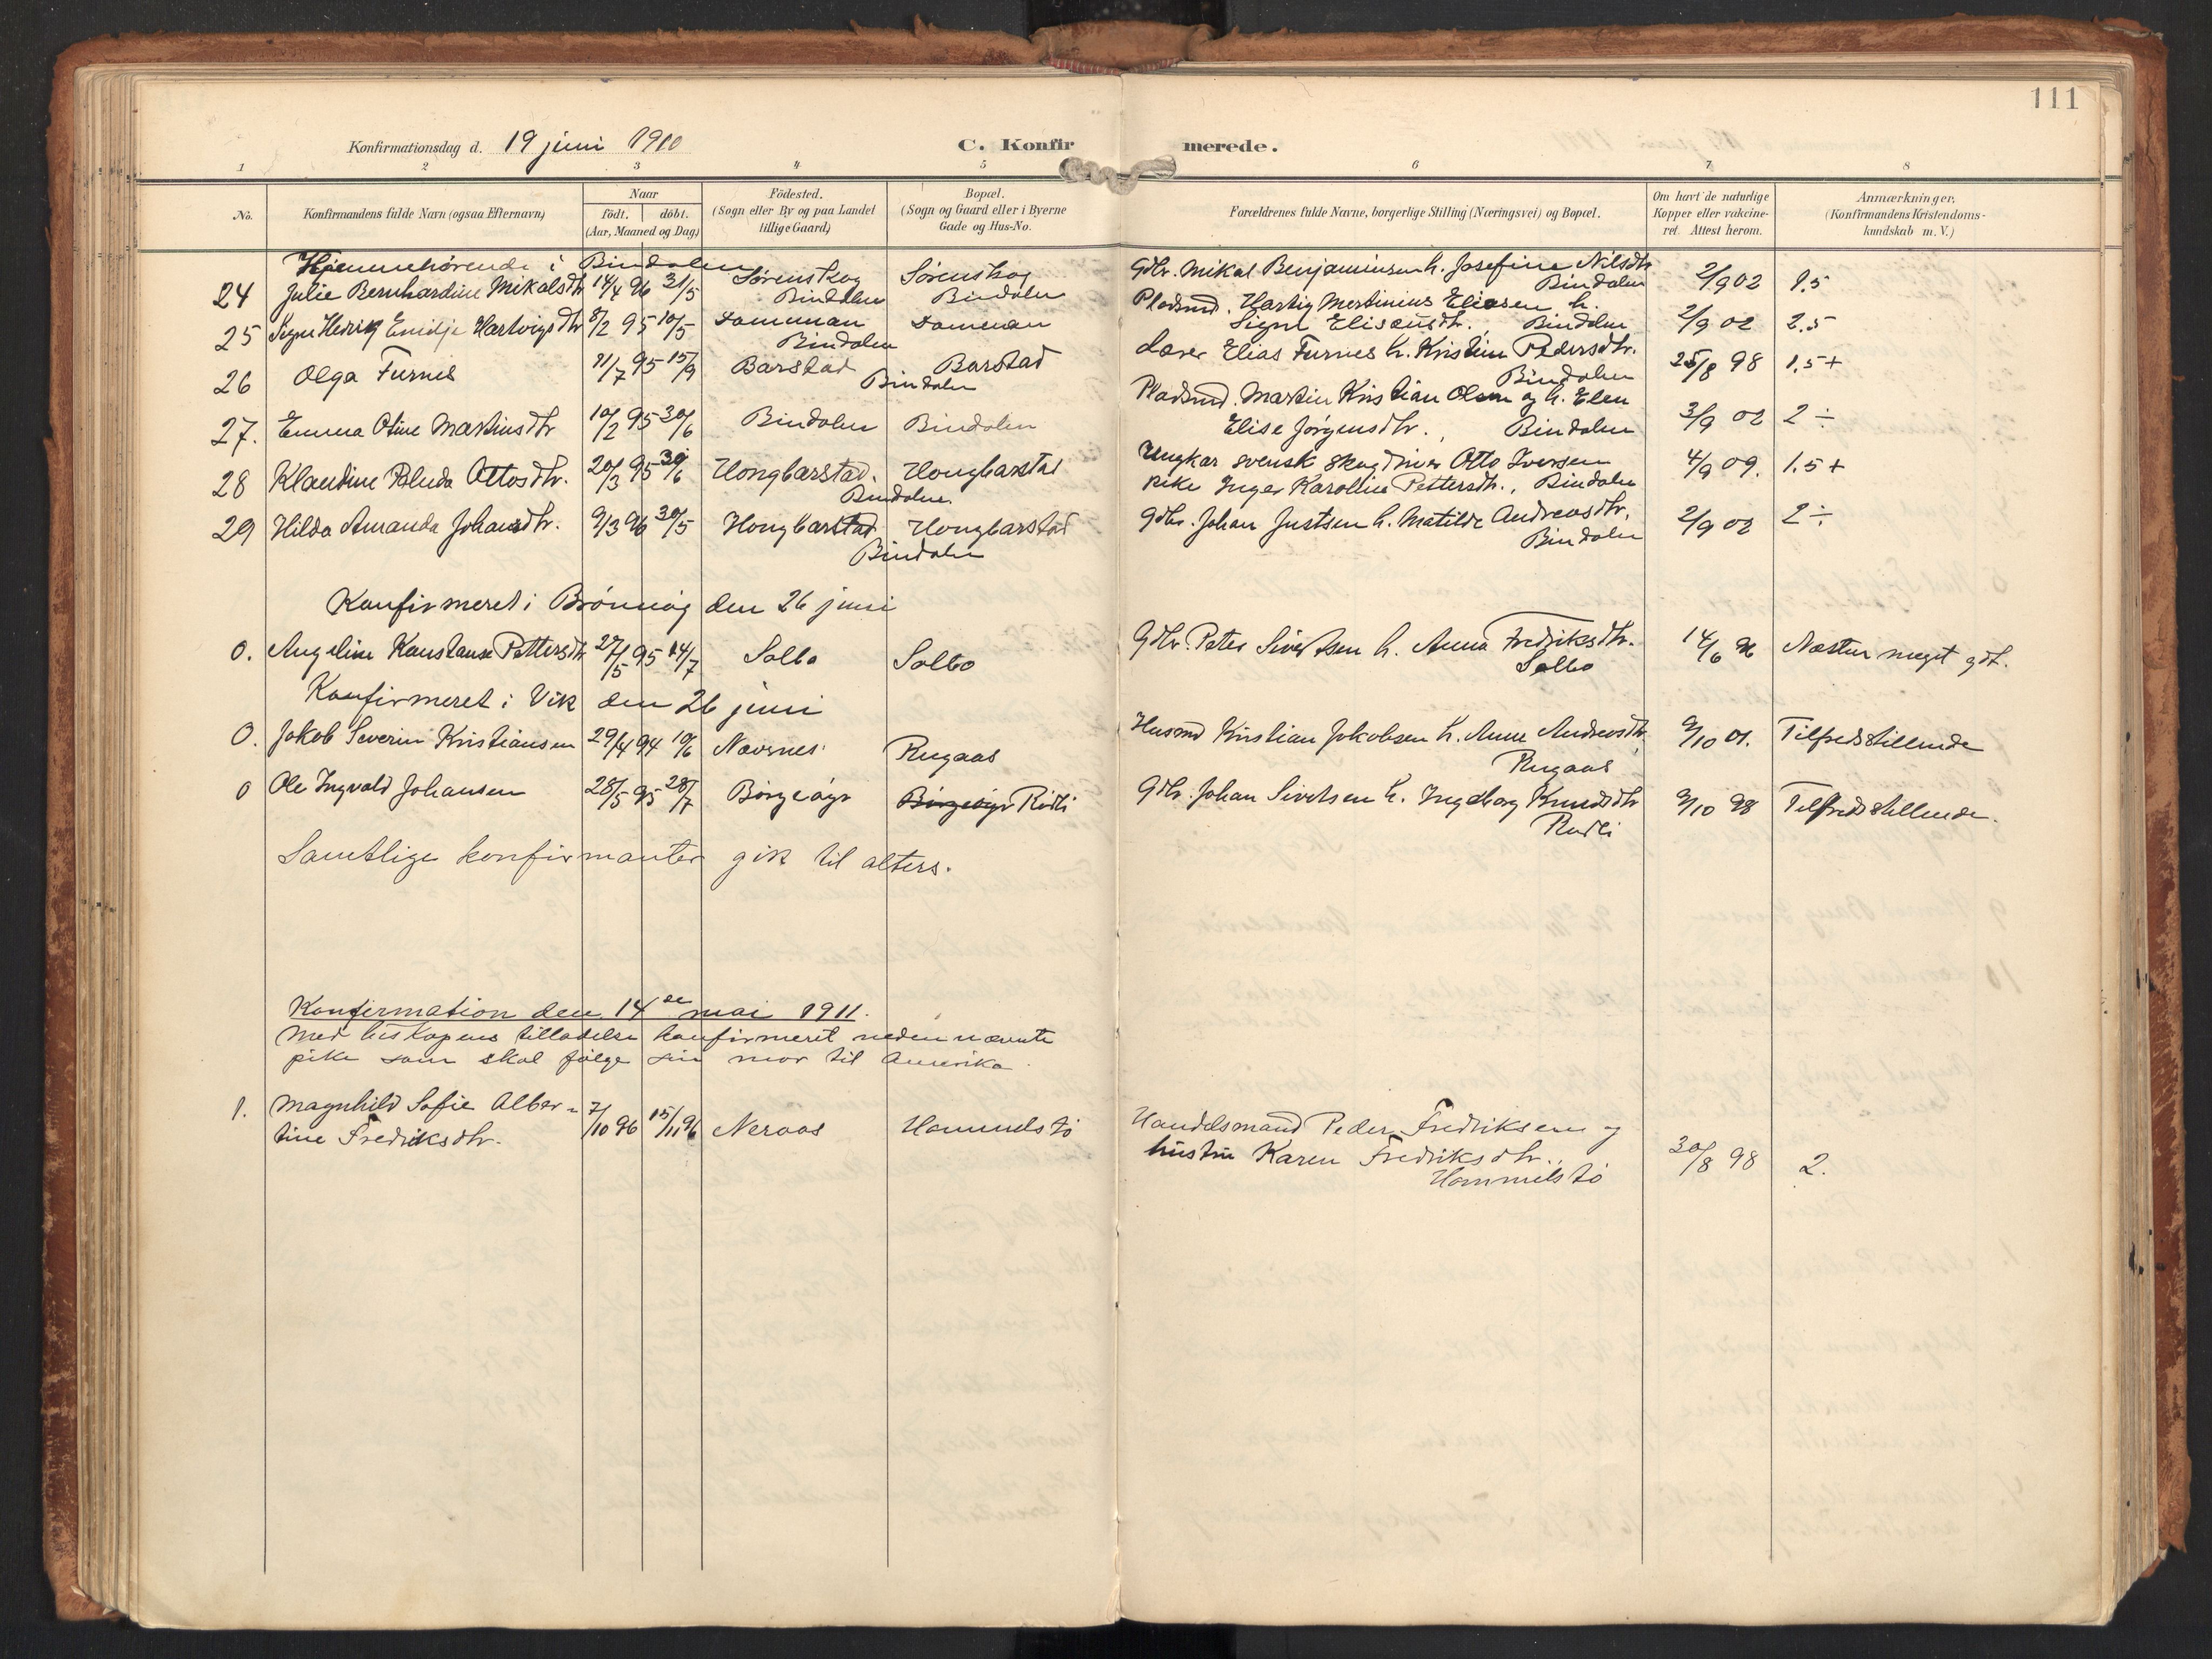 111
Konfirmationsdag d. 19 juni 1910 C. Konfirmerede.
1 2 3 4 5 6 7 8
No. Konfirmandens fulde Navn (ogsaa Efternavn) Naar født. døbt. (Aar, Maaned og Dag) Födested. (Sogn eller By og paa Landet tillige Gaard) Bopæl. (Sogn og Gaard eller i Byerne Gade og Hus-No. Forældrenes fulde Navne, borgerlige Stilling (Næringsvei) og Bopæl. Om havt de naturlige Kopper eller vakcineret. Attest herom. Anmærkninger. (Konfirmandens Kristendomskundskab m. V.)
Hjemmehörende i Bindalen
24 Julie Bernhardine Mikalsdtr 14/4 96 31/5 Sørenskog Bindalen Sørenskog Bindalen Gdbr. Mikal Benjaminsen h. Josefine Nilsdtr Bindalen 2/9 02 1.5
25 Signe Hedvig Emidje Hartvigsdtr 8/2 95 10/5 Bindalen Pladsmd. Hartvig Martinius Eliasen h. Signe Eliseusdtr., Bindalen 2/9 02 2.5
26 Olga Furnes 11/7 95 15/9 Barstad Bindalen Barstad Lærer Elias Furnes h. Kristine Pedersdtr. Bindalen 25/8 98 1.5+
27. Emma Otine Martinsdtr 10/2 95 30/6 Bindalen Bindalen Pladsmd. Martin Kristian Olsen og h. Elen Elise Jørgensdtr., Bindalen 3/9 02 2 ÷
28 Klaudine Ottosdtr. 20/3 95 30/6 Hongbarstad. Bindalen. Hongbarstad Ungkar svensk skogdriver Otto Iversen pike Inger Karoline Pettersdtr., Bindalen 4/9 09. 1.5+
29 Hilda Amanda Johansdtr. 9/3 96 30/5 Hongbarstad Bindalen Hongbarstad Gdbr. Johan Justsen h. Matilde Andreasdtr. Bindalen 2/9 02 2 ÷
Konfirmeret i Brönnöy den 26 juni
0. Angeline Konstanse Pettersdtr 27/5 95 14/7 Salbo Salbo Gdbr. Peter Sivertsen h. Anna Fredriksdtr. Salbo 14/6 96 Næsten meget godt.
Konfirmeret i Vik den 26 juni
0. Jakob Severin Kristiansen 29/4 94 10/6 Nævernes Rugaas Husmd Kristian Jakobsen h. Anne Andreasdtr, Rugaas 9/10 01. Tilfredsstillende
0 Ole Ingvald Johansen 28/5 95 28/7 Börgeöyr Börgeöyr Rödli Gdbr. Johan Sivertsen h. Ingeborg Knudsdtr Rödli 9/10 98 Tilfredsstillende.
Samtlige konfirmanter gik til alters.
Konfirmation den 14de mai 1911.
Med biskopens tilladelse konfirmeret nedennævnte
pike som skal følge sin mor til Amerika.
1. Magnhild Sofie Alber-
tine Fredriksdtr. 7/10 96 15/11 96 Neraas Hommelstö Handelsmand Peder Fredriksen og
hustru Karen Fredriksdtr.,
Hommelstö 30/8 98 2.